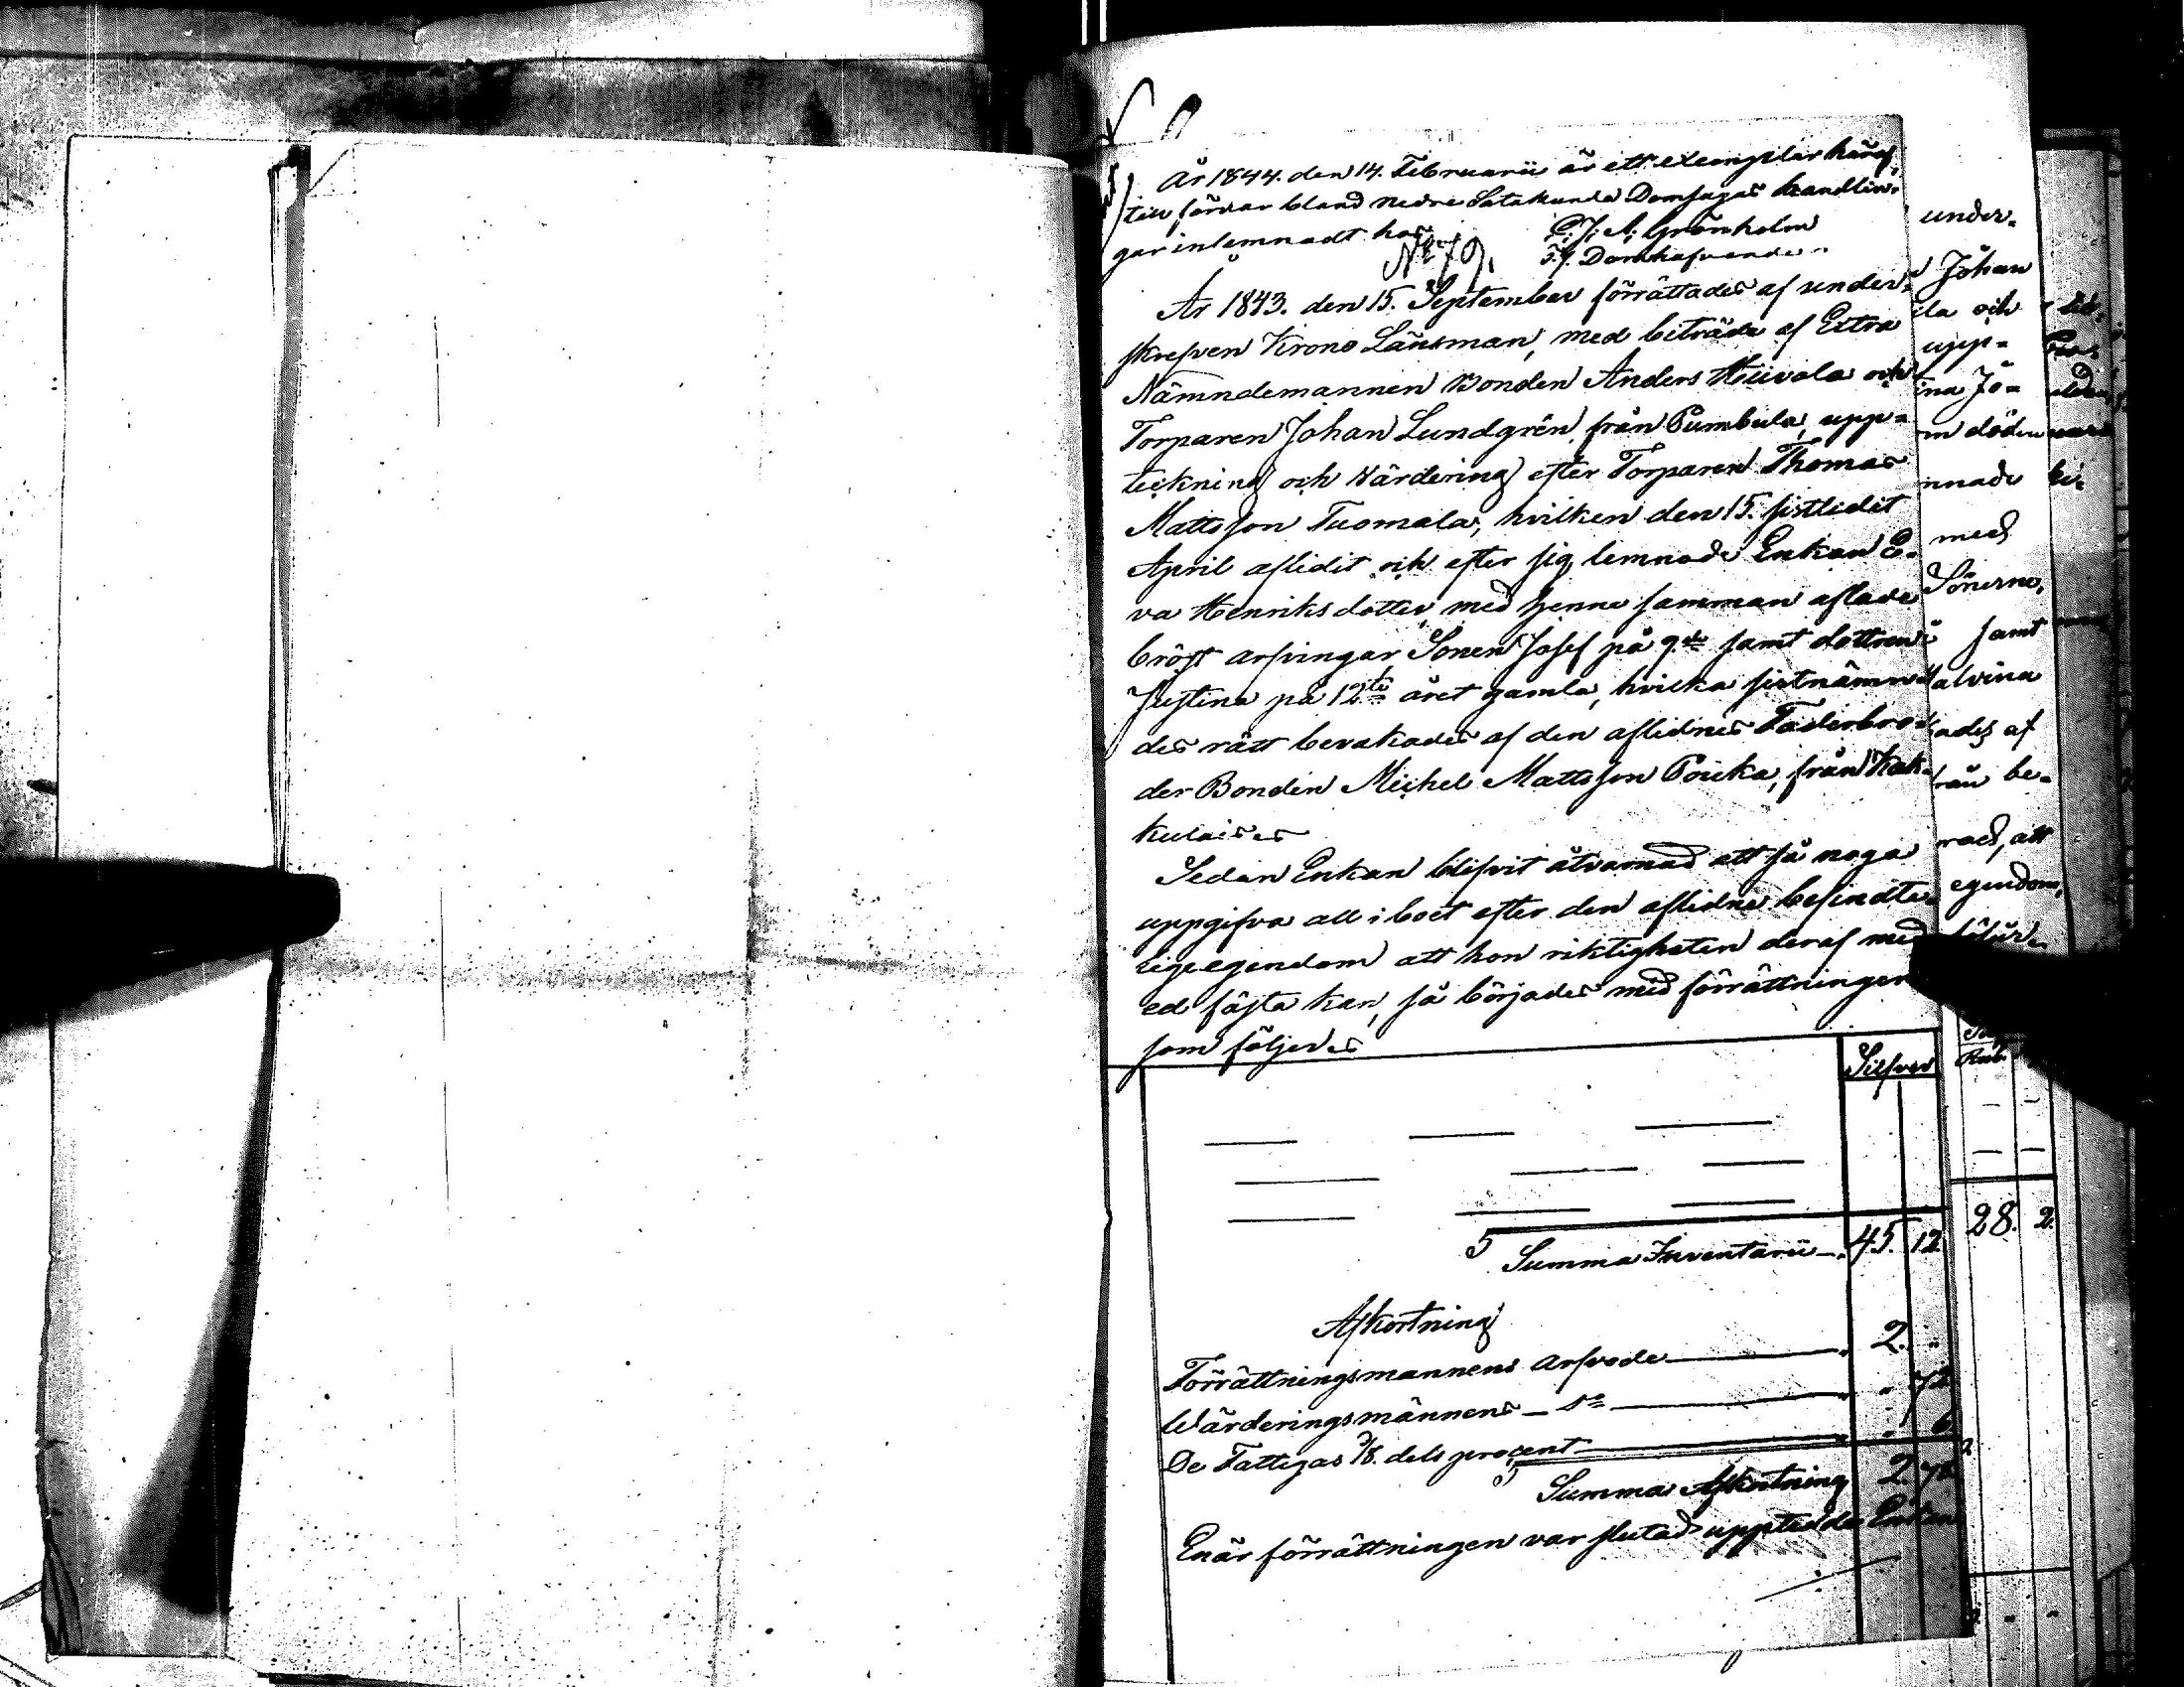 År 1844. den 14. Februarii är ett exemplar häraf,
till förvar bland nedre Satakunda Domsagas handlin-
gar inlemnadt hos
C. J. A. Grönholm
T. f. Domhafvande
No 79.
År 1843. den 15. September förrättades af under-
skrefven Krono Länsman, med biträde af Extra
Nämndemannen Bonden Anders Hiivola och
Torparen Johan Lundgrén, från Pumbula, upp-
teckning och värdering efter Torparen Thomas
Mattsson Tuomala, hvilken den 15. sistledit
April aflidit och efter sig lemnade Enkan E-
va Henriksdotter, med henne samman aflade
bröst arfvingar Sonen Josef på 9de samt dottren
Justina på 12te året gamla, hvilka sistnämn-
des rätt bevakades af den aflidnes Faderbro-
der Bonden Michel Mattsson Pöucka, från Kak-
kulais.
Sedan Enkan blifvit åtvarnad att så noga
uppgifva all i boet efter den aflidne befindte-
lige egendom att hon riktigheten deraf med
ed fästa kan, så börjades med förrättningen
som följer
Silfver
Summa Inventarii 45. 12
Afkortning
Förrättningsmannens arfvode 2. "
Wärderingsmännens do " 72
De Fattigas 1/8. dels procent " 6
Summa Afkortning 2. 78
Enär förrättningen var slutad uppteddes Enkan
under-
Johan
och
upp-
ina Jo-
döden
med
Sönerne,
samt
alvina
ades af
från be-
rad, att
egendom,
Rub.
28. 2.